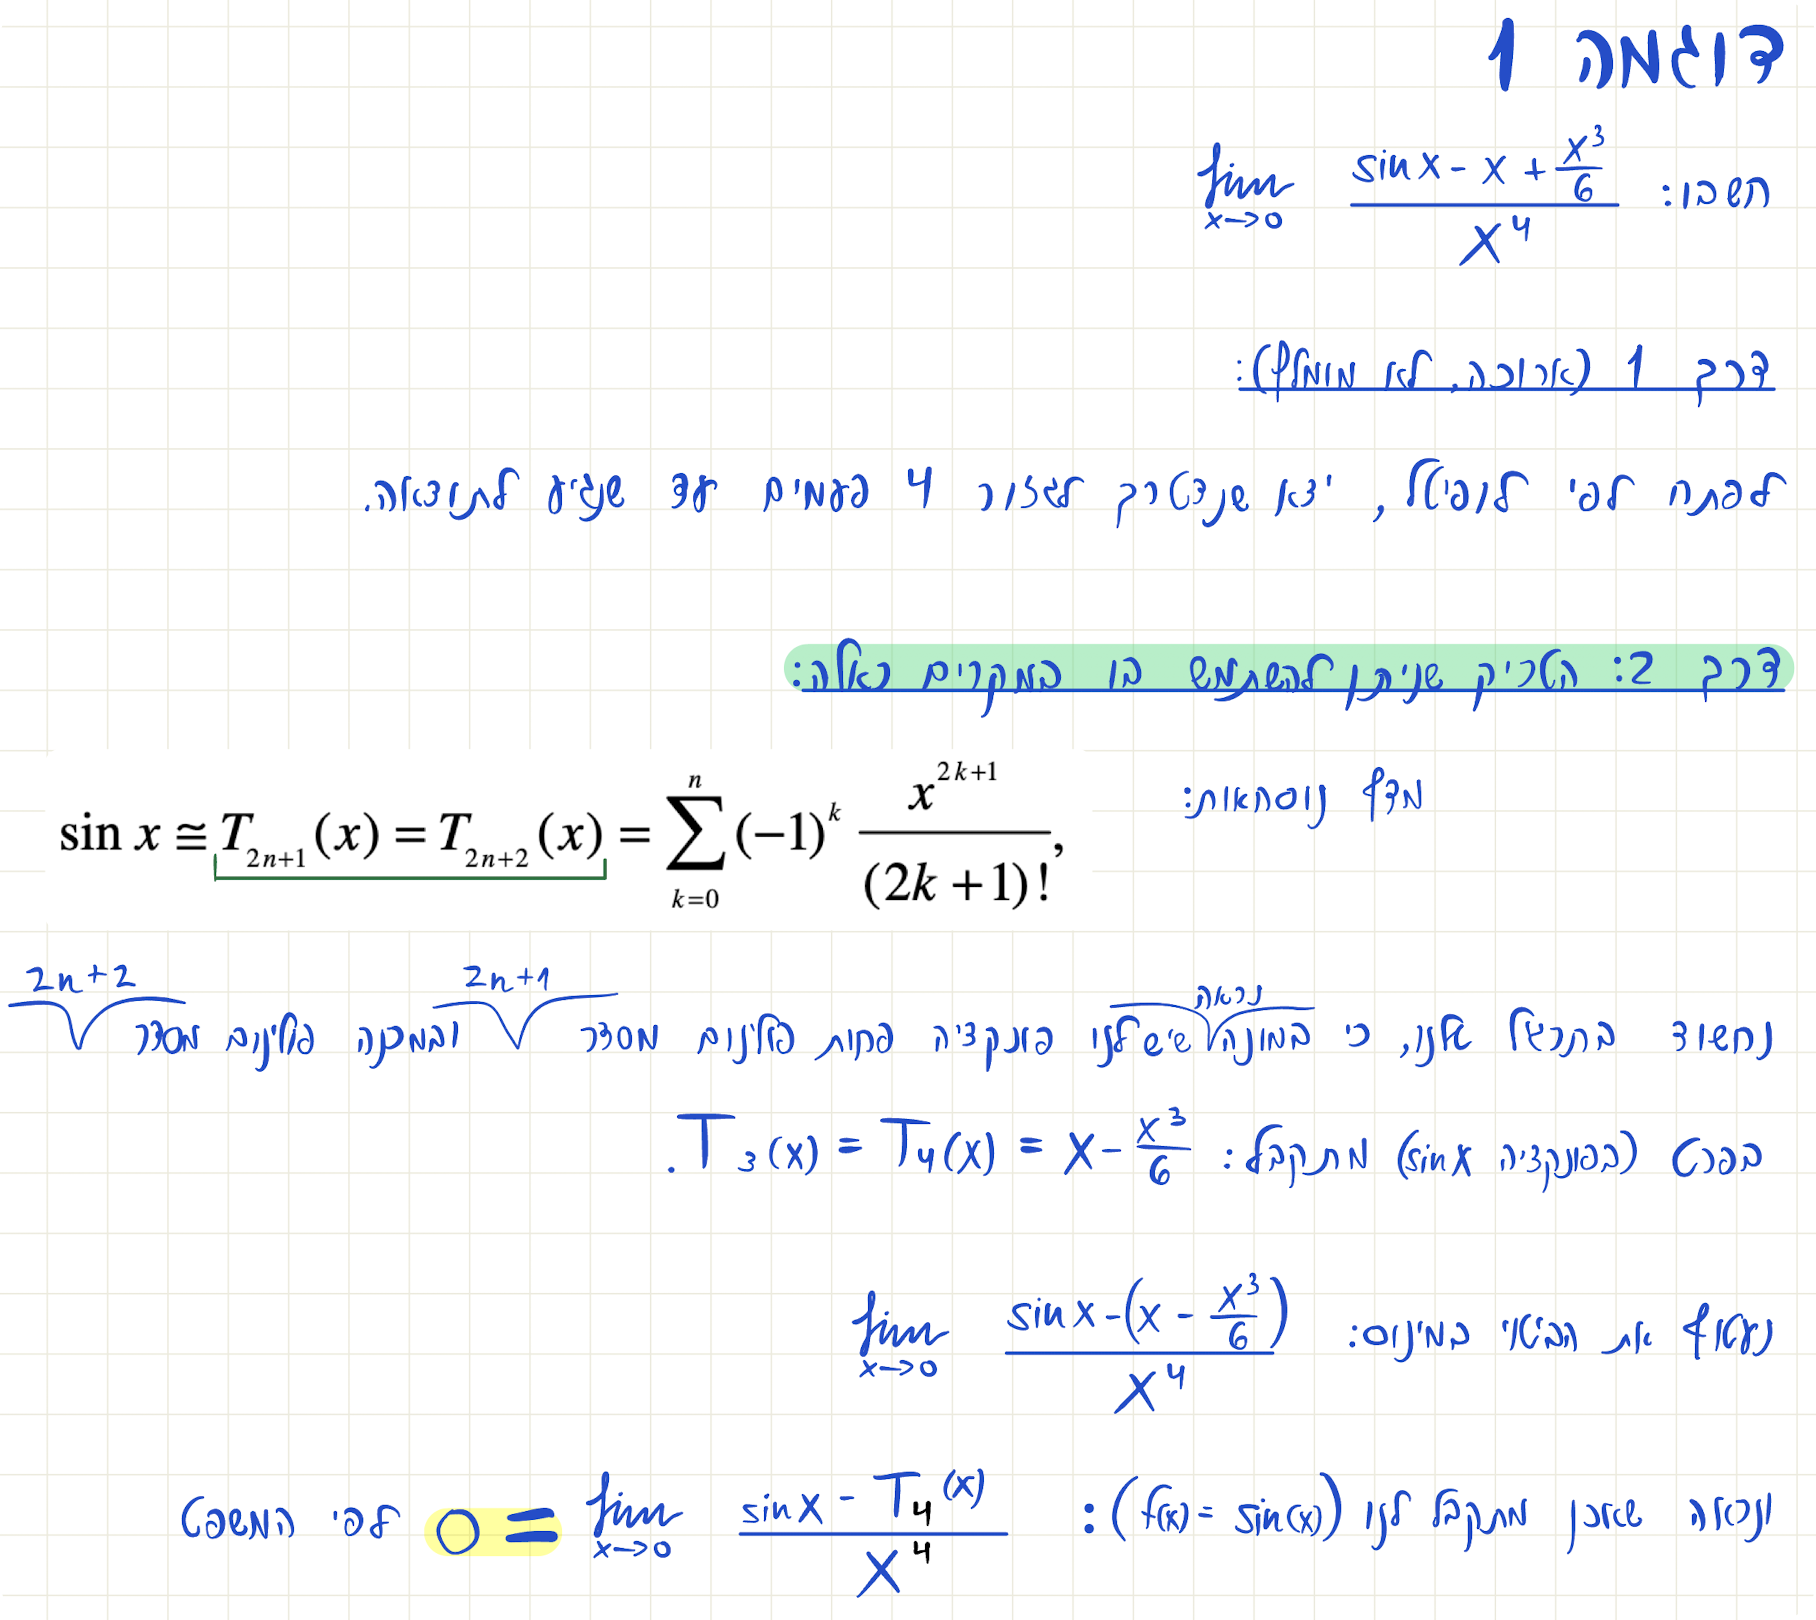 דוגמה 1
חשבו: lim x→0 (sin x - x + x³/6) / x⁴
דרך 1 (ארוכה, לא מומלץ):
לפתח לפי לופיטל, יצא שנצטרך לגזור 4 פעמים עד שנגיע לתוצאה.
דרך 2: הטריק שניתן להשתמש בו במקרים כאלה:
מדף נוסחאות:
sin x ≅ T_{2n+1}(x) = T_{2n+2}(x) = ∑_{k=0}^{n} (-1)^k x^{2k+1} / (2k+1)!,
נראה 2n+1 2n+2
נחשוד בתרגיל שלנו, כי במונה שיש לנו פונקציה פחות פולינום מסדר ובמכנה פולינום מסדר
בפרט (בפונקציה sin x) מתקבל: T₃(x) = T₄(x) = x - x³/6.
נעטוף את הביטוי במינוס: lim x→0 (sin x - (x - x³/6)) / x⁴
ונראה שאכן מתקבל לנו (f(x) = sin(x)): lim x→0 (sin x - T₄(x)) / x⁴ = 0 לפי המשפט